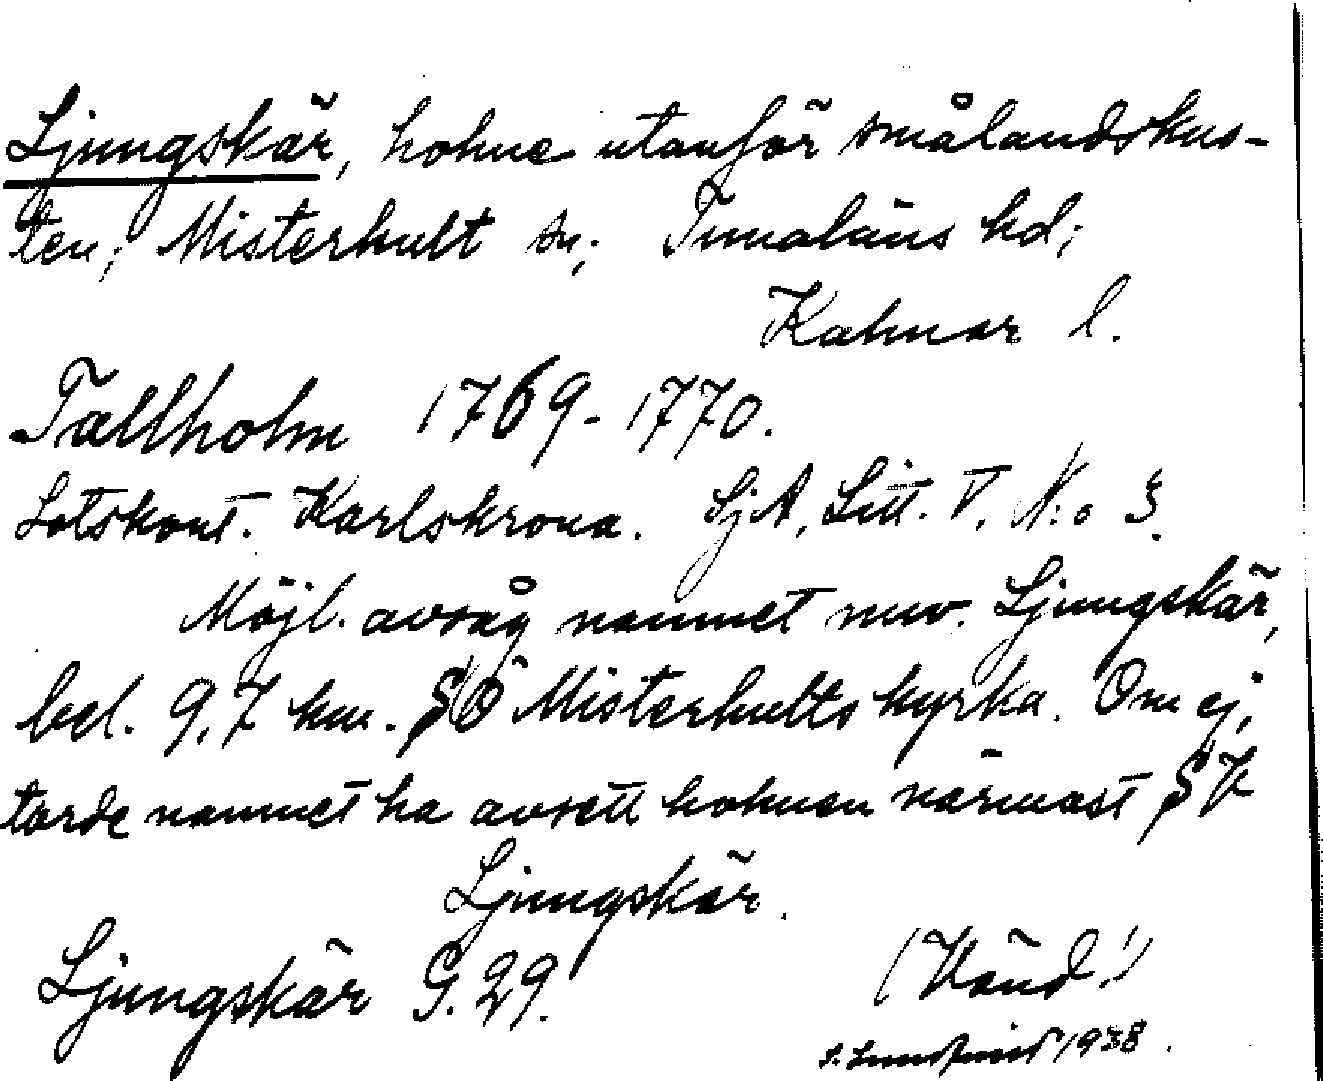 Ljungskär, holme utanför smålandskus-
ten, Misterhult sn; Tunaläns hd;
Kalmar l.
Tallholm 1769-1770.
Lotskont. Karlskrona. SjA, Litt. V. N:o 3.
Möjl. avsåg namnet nuv. Ljungskär,
bel. 9,7 km. SÖ Misterhults kyrka. Om ej,
torde namnet ha avsett holmen närmast SV
Ljungskär.
Ljungskär G. 29. (Vänd!)
1938.